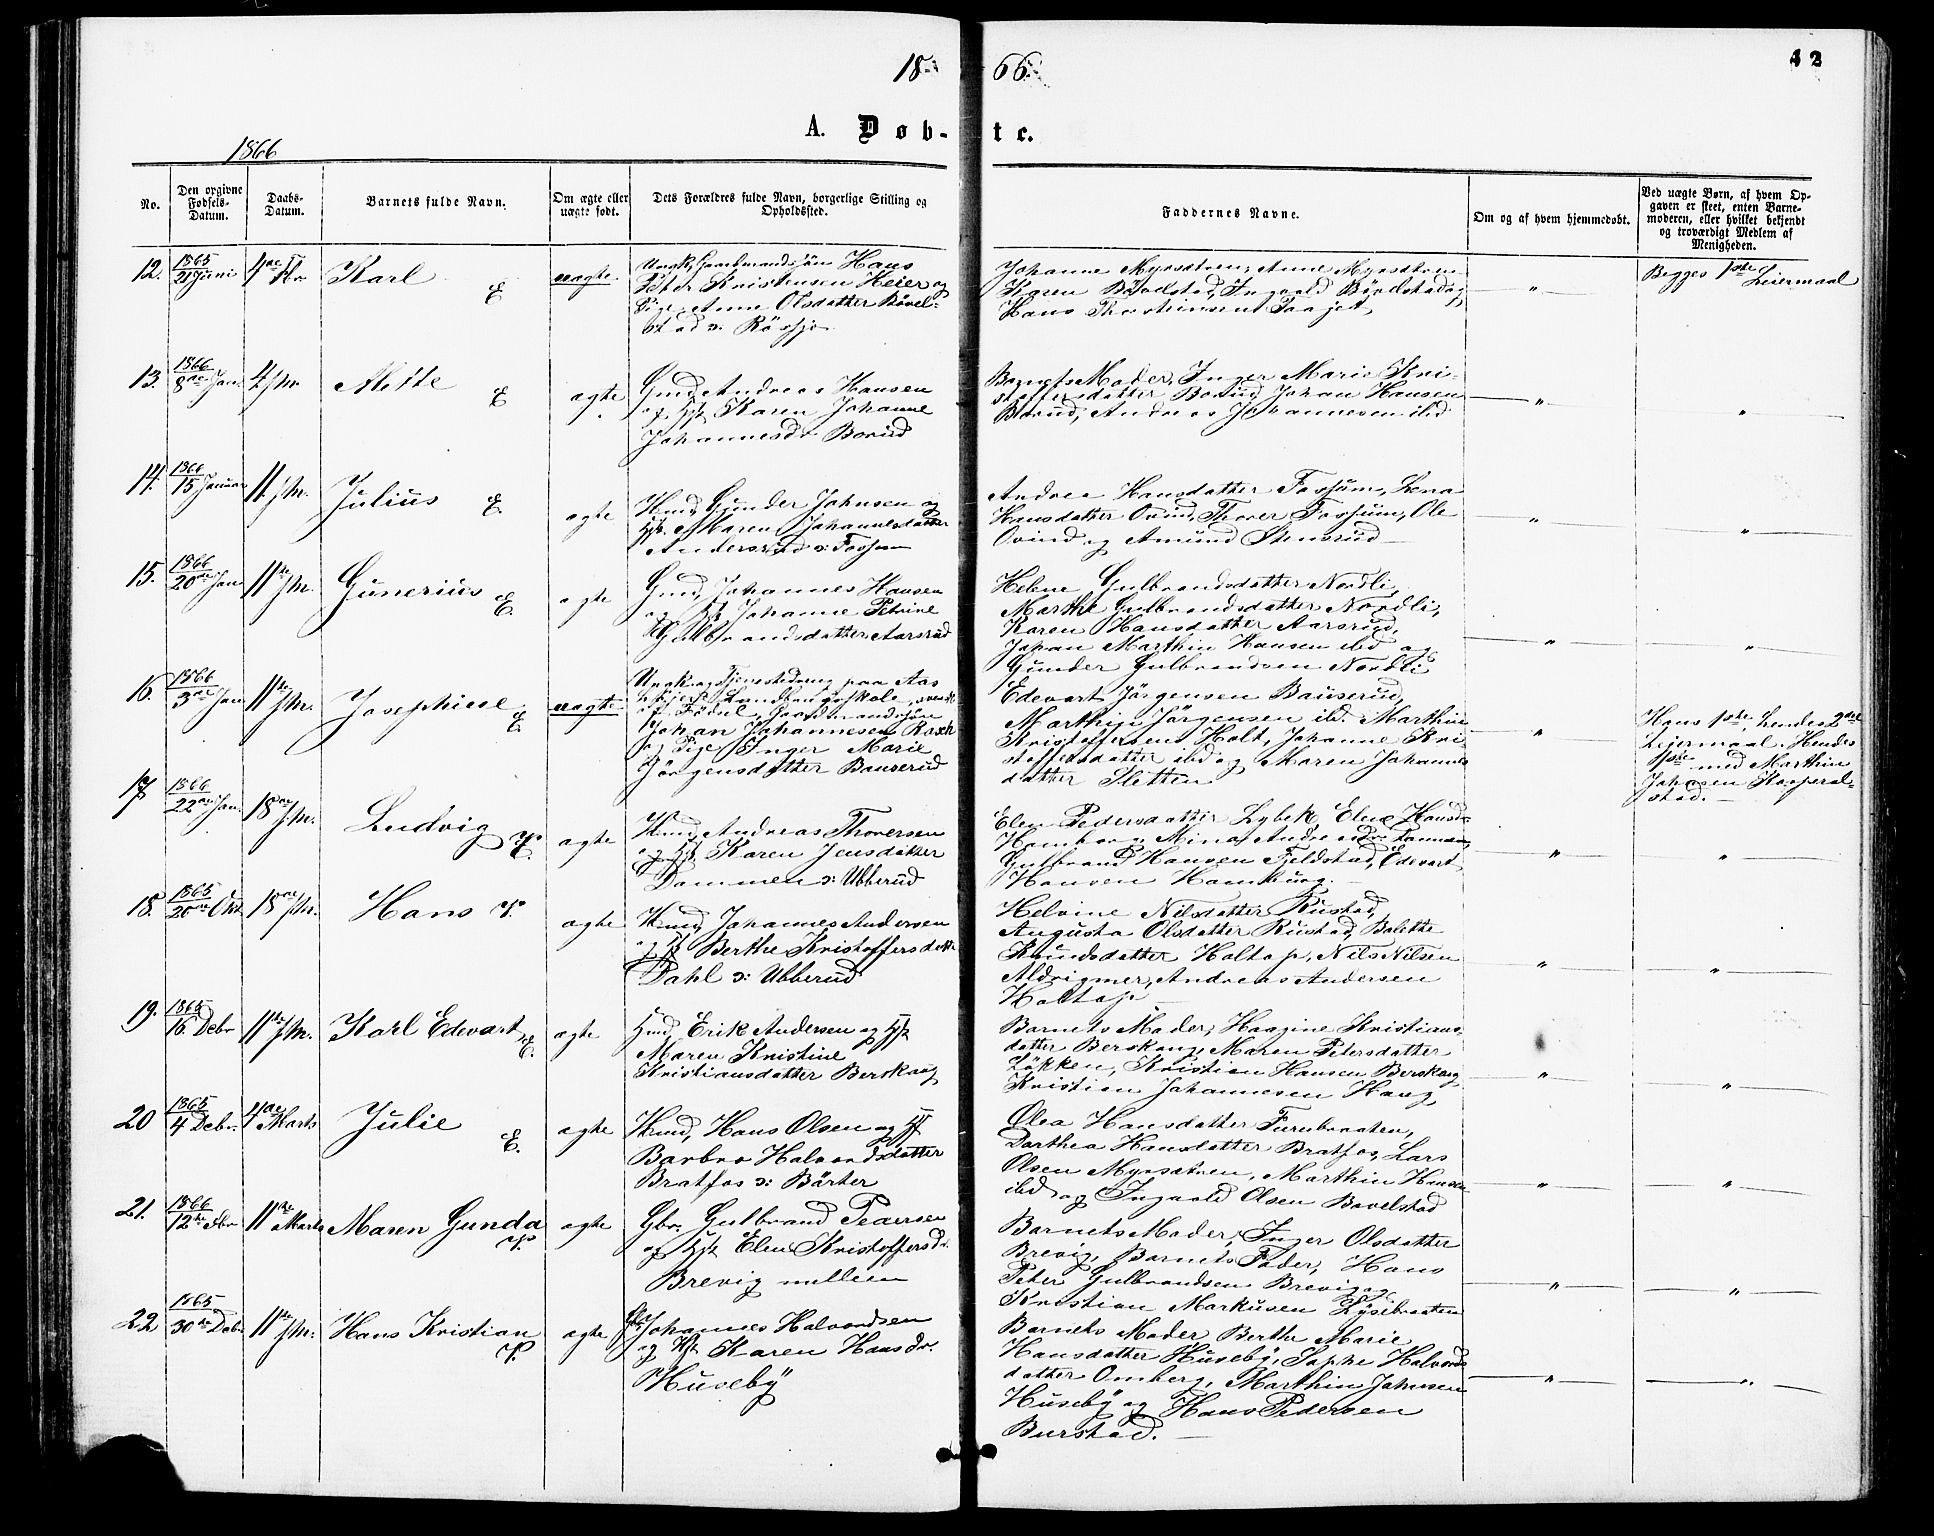 18 66.
42
A. Døb- te.
1866
No.
Den opgivne Fødsels-Datum.
Daabs-Datum.
Barnets fulde Navn.
Om ægte eller uægte født.
Dets Forældres fulde Navn, borgerlige Stilling og Opholdssted.
Faddernes Navne.
Om og af hvem hjemmedøbt.
Ved uægte Børn, af hvem Opgaven er skeet, enten Barnemoderen, eller hvilket bekjendt og troværdigt Medlem af Menigheden.
12. 1865 21 Juni
Karl E
uægte
Ungk. Gaardmandssøn Hans
Peter Kristensen Heier og
Pige Anne Olsdatter Bövel-
stad
Johanne Myrsætren, Anne Myrsætren
Karen Bövelstad, Ingvald Bövelstad og
Hans Thorstensen Taajet
"
Begges 1ste Leiermaal
13. 1866 8de Jan.
Mette E
ægte
Gmd. Andreas Hansen
og Hst. Karen Johanne
Johannesdr Borud
Barnets Moder, Inger Marie Kri-
stoffersdatter Borud, Johan Hansen
Borud, Andreas Johannesen ibd
"
"
14. 1866 15 Januar 11.
Julius E.
ægte
Hmd. Gunder Johnsen og
Hst. Maren Johannesdatter
Andersrud Fossum
Andrea Hansdatter Fossum, Lena
Hansdatter Ovind, Thorer Fossum, Ole
Ovind og Amund Stensrud
"
"
15. 1866 20de Jan 11te
Gunerius E.
ægte
Gmd. Johannes Hansen
og Hst. Johanne Petrine
Gulbrandsdatter Aarsrud
Helene Gulbrandsdatter Nordli,
Marthe Gulbrandsdatter Nordli,
Karen Hansdatter Aarsrud,
Johan Marthin Hansen ibd og
Gunder Gulbrandsen Nordli
"
"
16. 1866 3de Jan 11te
Josephine E
uægte
Ungk. og Tjenestedreng paa Aas
höjere Landbrugsskole,
Gaardmandssön
Johan Johannesen
og Pige Inger Marie
Jörgensdatter Bauserud
Edevart Jörgensen Bauserud,
Marthin Jörgensen ibd. Marthin
Kristoffersen Holt, Johanne Kri-
stoffersdatter ibd og Maren Johannes
datter Sletten
"
Hans 1ste, hendes 2det
Leiermaal. Hendes
1ste med Marthin
Johnsen
stad.
17 1866 22de Jan. 18de
Ludvig V.
ægte
Hmd. Andreas Thoresen
og Hst. Karen Jensdatter
Dammen Ubberud
Elen Pedersdatter Lybek, Elene Hansdr
Hamborg, Mina Dammen,
Gulbrand Hansen Fjeldstad, Edevart
Hansen Hamburg.
"
"
18. 1865 20de Okt 18de
Hans V.
ægte
Hmd. Johannes Andersen
og Hst. Berthe Kristoffersdatter
Dahl Ubberud
Helvine Nilsdatter Rustad,
Augusta Olsdatter Rustad, Bolette
Knudsdatter Holtop, Nils Nilsen
Aldrigmer, Andreas Andersen
Holtop
"
"
19. 1865 16 Debr 11te
Karl Edevart E.
ægte
Hmd. Erik Andersen og Hst
Maren Kristine
Kristiansdatter Berskaug
Barnets Moder, Haagine Kristians-
datter Berskaug, Maren Petersdatter
Løkken, Kristian Hansen Berskaug
Kristian Johannesen Haug,
"
"
20 1865 4 Debr. 4de Marts
Julie E.
ægte
Hmd, Hans Olsen og Hst
Barbro Halvordsdatter
Bratfos Börter
Olea Hansdatter Furubraaten,
Dorthea Hansdatter Bratfos, Lars
Olsen Myrsætren, Marthin Hansen
ibd og Ingvald Olsen Bovelstad
"
"
21. 1866 12te 11te Marts
Maren Gunda V.
ægte
Gbr. Gulbrand Pedersen
og Hst. Elen Kristoffersdr.
Brevig mellem
Barnets Moder, Inger Olsdatter
Brevig, Barnets Fader, Hans
Peter Gulbrandsen Brevig og
Kristian Markusen Lysebraaten
"
"
22 1865 30te Debr 11te
Hans Kristian V.
ægte
Johannes Halvordsen
og Hst. Karen Hansdr.
Huseby
Barnets Moder, Berthe Marie
Hansdatter Huseby, Sophe Halvords
datter Omberg, Marthin Johnsen
Huseby og Hans Pedersen
Burstad.
"
"